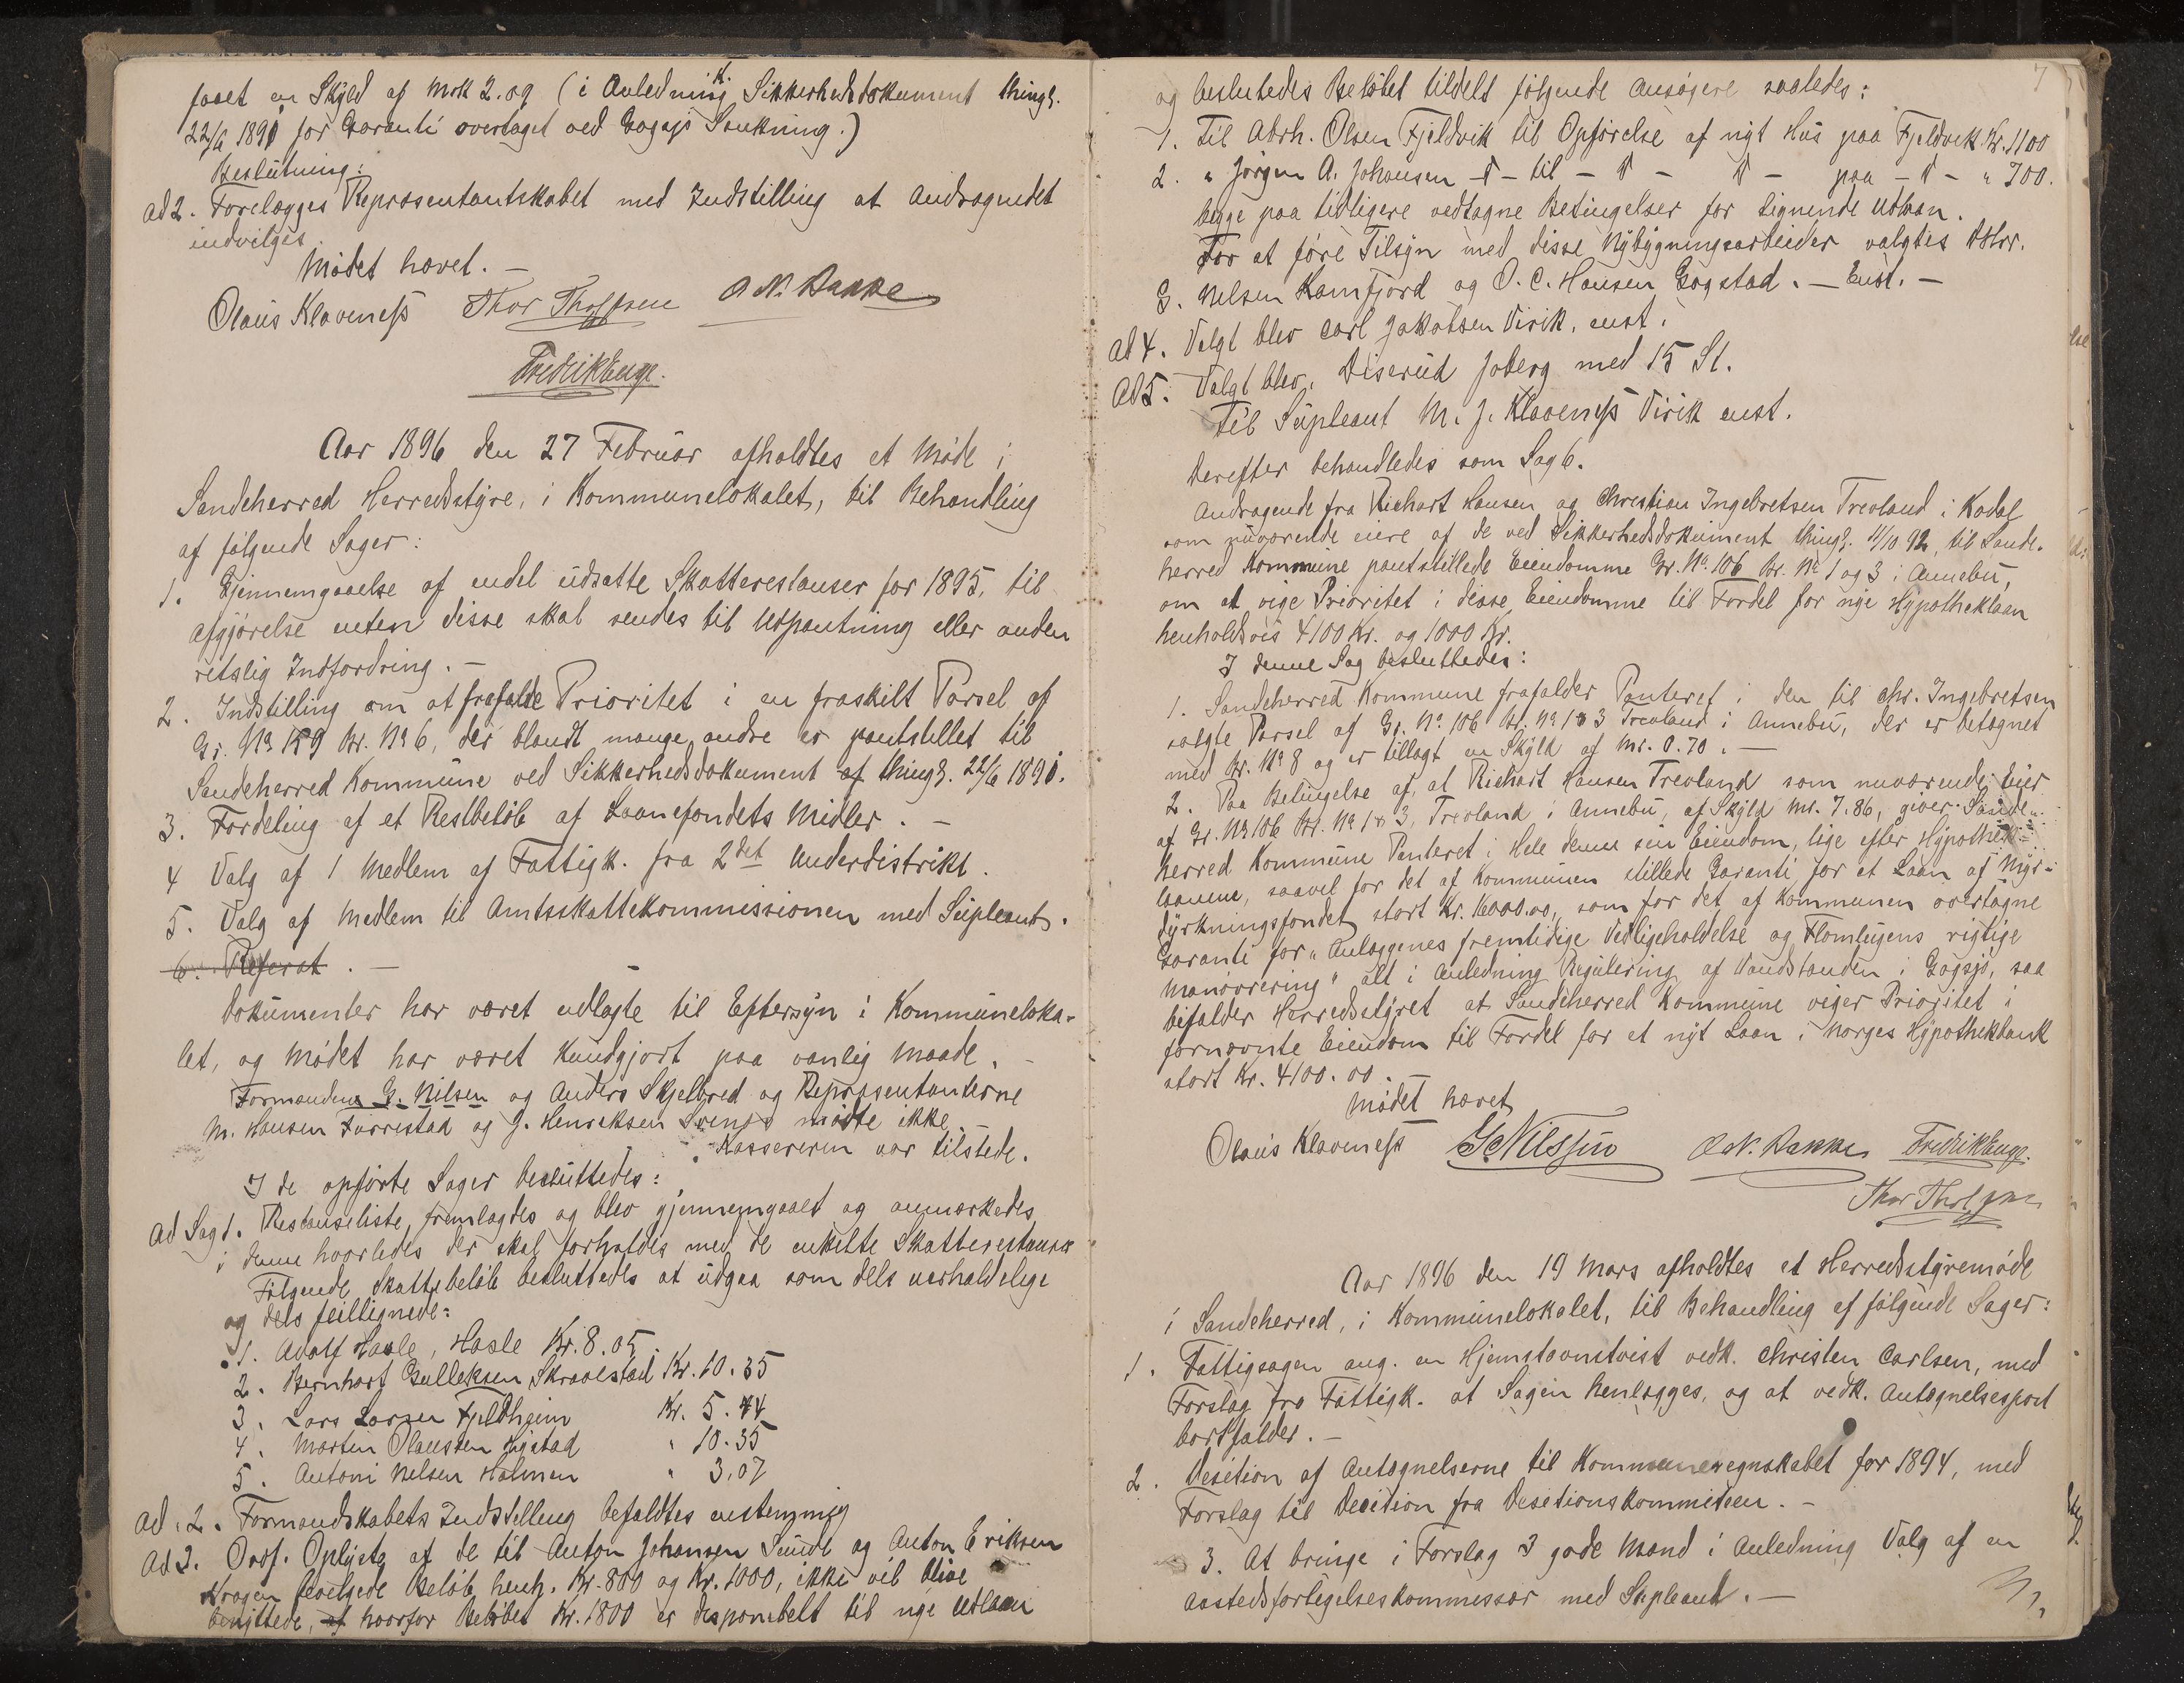 faaet en Skyld af Mrk 2.09 (i Anledning K. Sikkerhedsdokument thingl.
22/6 1891 for Garanti overtaget ved Gogsjø Sænkning.)
Beslutning:
ad 2. Forelægges Repræsentantskabet med Indstilling at Andragendet
indvilges
Mødet hævet. —
Olaus Klavenæss Thor Thorsen O. N. Bakke
Fredrik Enge.
Aar 1896 den 27 Februar afholdtes et Møde i
Sandeherred Herredsstyre, i Kommunelokalet, til Behandling
af følgende Sager:
1. Gjennemgaaelse af endel udsatte Skatterestanser for 1895, til
afgjørelse enten disse skal sendes til Udpantning eller anden
retslig Indfordring. —
2. Indstilling om at frafalde Prioritet i en fraskilt Parsel af
Gr. No 159 Br. No 6, der blandt mange andre er pantstillet til
Sandeherred Kommune ved Sikkerhedsdokument af thingl. 22/6 1891.
3. Fordeling af et Restbeløb af Laanefondets Midler. —
4 Valg af 1 Medlem af Fattigk. fra 2det Underdistrikt.
5. Valg af Medlem til Amtsskattekommissionen med Supleant.
6. Referat. —
Dokumenter har været udlagte til Eftersyn i Kommuneloka-
let, og Mødet har været kundgjort paa vanlig Maade. —
Formanden G. Nilsen og Anders Skjelbred og Repræsentanterne
M. Hansen Furrestad og J. Henriksen mødte ikke. —
Kassereren var tilstede.
I de opførte Sager besluttedes:
Ad Sag 1. Restanseliste fremlagdes og blev gjennemgaaet og anmærkedes
i denne hvorledes der skal forholdes med de enkelte Skatterestanser
Følgende Skattebeløb besluttedes at udgaa som dels uerholdelige
og dels feillignede:
1. Adolf Hasle, Hasle Kr. 8.05
2. Bernhart Gulleksen Skravestad Kr. 10.35
3. Lars Larsen Fjeldheim Kr. 5.44
4. Martin Olaussen Høistad " 10.35
5. Antoni Nelsen Holmen " 3.07
Ad. 2. Formandskabets Indstilling bifaldtes enstemmig
Ad 3. Ordf. Oplyste at de til Anton Johansen Sunde og Anton Eriksen
Krogen bevilgede Beløb henh. Kr. 800 og Kr. 1000, ikke vil blive
benyttede, af hvorfor Beløbet Kr. 1800 er disponibelt til nye Udlaan
7
og besluttedes Beløbet tildelt følgende Ansøgere saaledes:
1. Til Abrh. Olsen Fjeldvik til Opførelse af nyt Hus paa Fjeldvik Kr. 1100
2. " Jørgen A. Johansen - " - til - " - " - paa - " - " 700.
begge paa tidligere vedtagne Betingelser for lignende Udlaan.
For at føre Tilsyn med disse Nybygningsarbeider valgtes Hrr.
G. Nelsen Kamfjord og O. C. Hansen Gogstad. — Enst. —
Ad 4. Valgt blev Carl Jakobsen Virik, enst.
Ad 5. Valgt blev, Diserud Joberg med 15 St.
Til Supleant M. J. Klavenæss Virik enst.
Derefter behandledes som Sag 6.
Andragende fra Richart Hansen og Christian Ingebretsen Trevland i Kodal
som nuværende eiere af de ved Sikkerhedsdokument thingl. 11/10 92, til Sande-
herred Kommune pantstillede Eiendomme Gr. No. 106 Br. No 1 og 3 i Annebu,
om at vige Prioritet i disse Eiendomme til Fordel for nye Hypotheklaan
henholdsvis 4100 Kr. og 1000 Kr.
I denne Sag besluttedes:
1. Sandeherred Kommune frafalder Panteret i den til Chr. Ingebretsen
solgte Parsel af Gr. No. 106 Br. No 1 & 3 Trevland i Annebu, der er betegnet
med Br. No 8 og er tillagt en Skyld af Mr. 0.70. —
2. Paa Betingelse af, at Richart Hansen Trevland som nuværende Eier
af Gr. No 106 Br. No 1 & 3, Trevland i Annebu, af Skyld Mr. 7.86, giver Sande-
herred Kommune Panteret i Hele denne sin Eiendom, lige efter Hypothek-
laanene, saavel for det af Kommunen stillede Garanti for et Laan af Myr-
dyrkningsfondet stort Kr. 16000.00, som for det af Kommunen overtagne
Garanti for "Anlæggenes fremtidige Vedligeholdelse og Flomlugens rigtige
Manøvrering" alt i Anledning Regulering af Vandstanden i Gogsjø, saa
bifalder Herredsstyret at Sandeherred Kommune viger Prioritet i
førnævnte Eiendom til Fordel for et nyt Laan i Norges Hypothekbank
stort Kr. 4100.00. —
Mødet hævet
Olaus Klavenæss G. Nilssen O. N. Bakke Fredrik Enge.
Thor Thorsen
Aar 1896 den 19 Mars afholdtes et Herredsstyremøde
i Sandeherred, i Kommunelokalet, til Behandling af følgende Sager:
1. Fattigsagen ang. en Hjemstavnstvist vedk. Christen Carlsen, med
Forslag fra Fattigk. at Sagen henlægges, og at vedk. Antegnelsespost
bortfalder. —
2. Desition af Antegnelserne til Kommuneregnskabet for 1894, med
Forslag til Decition fra Desitionskommiteen. —
3. At bringe i Forslag 3 gode Mænd i Anledning Valg af en
aastedsforligelseskommissær med Supleant. —